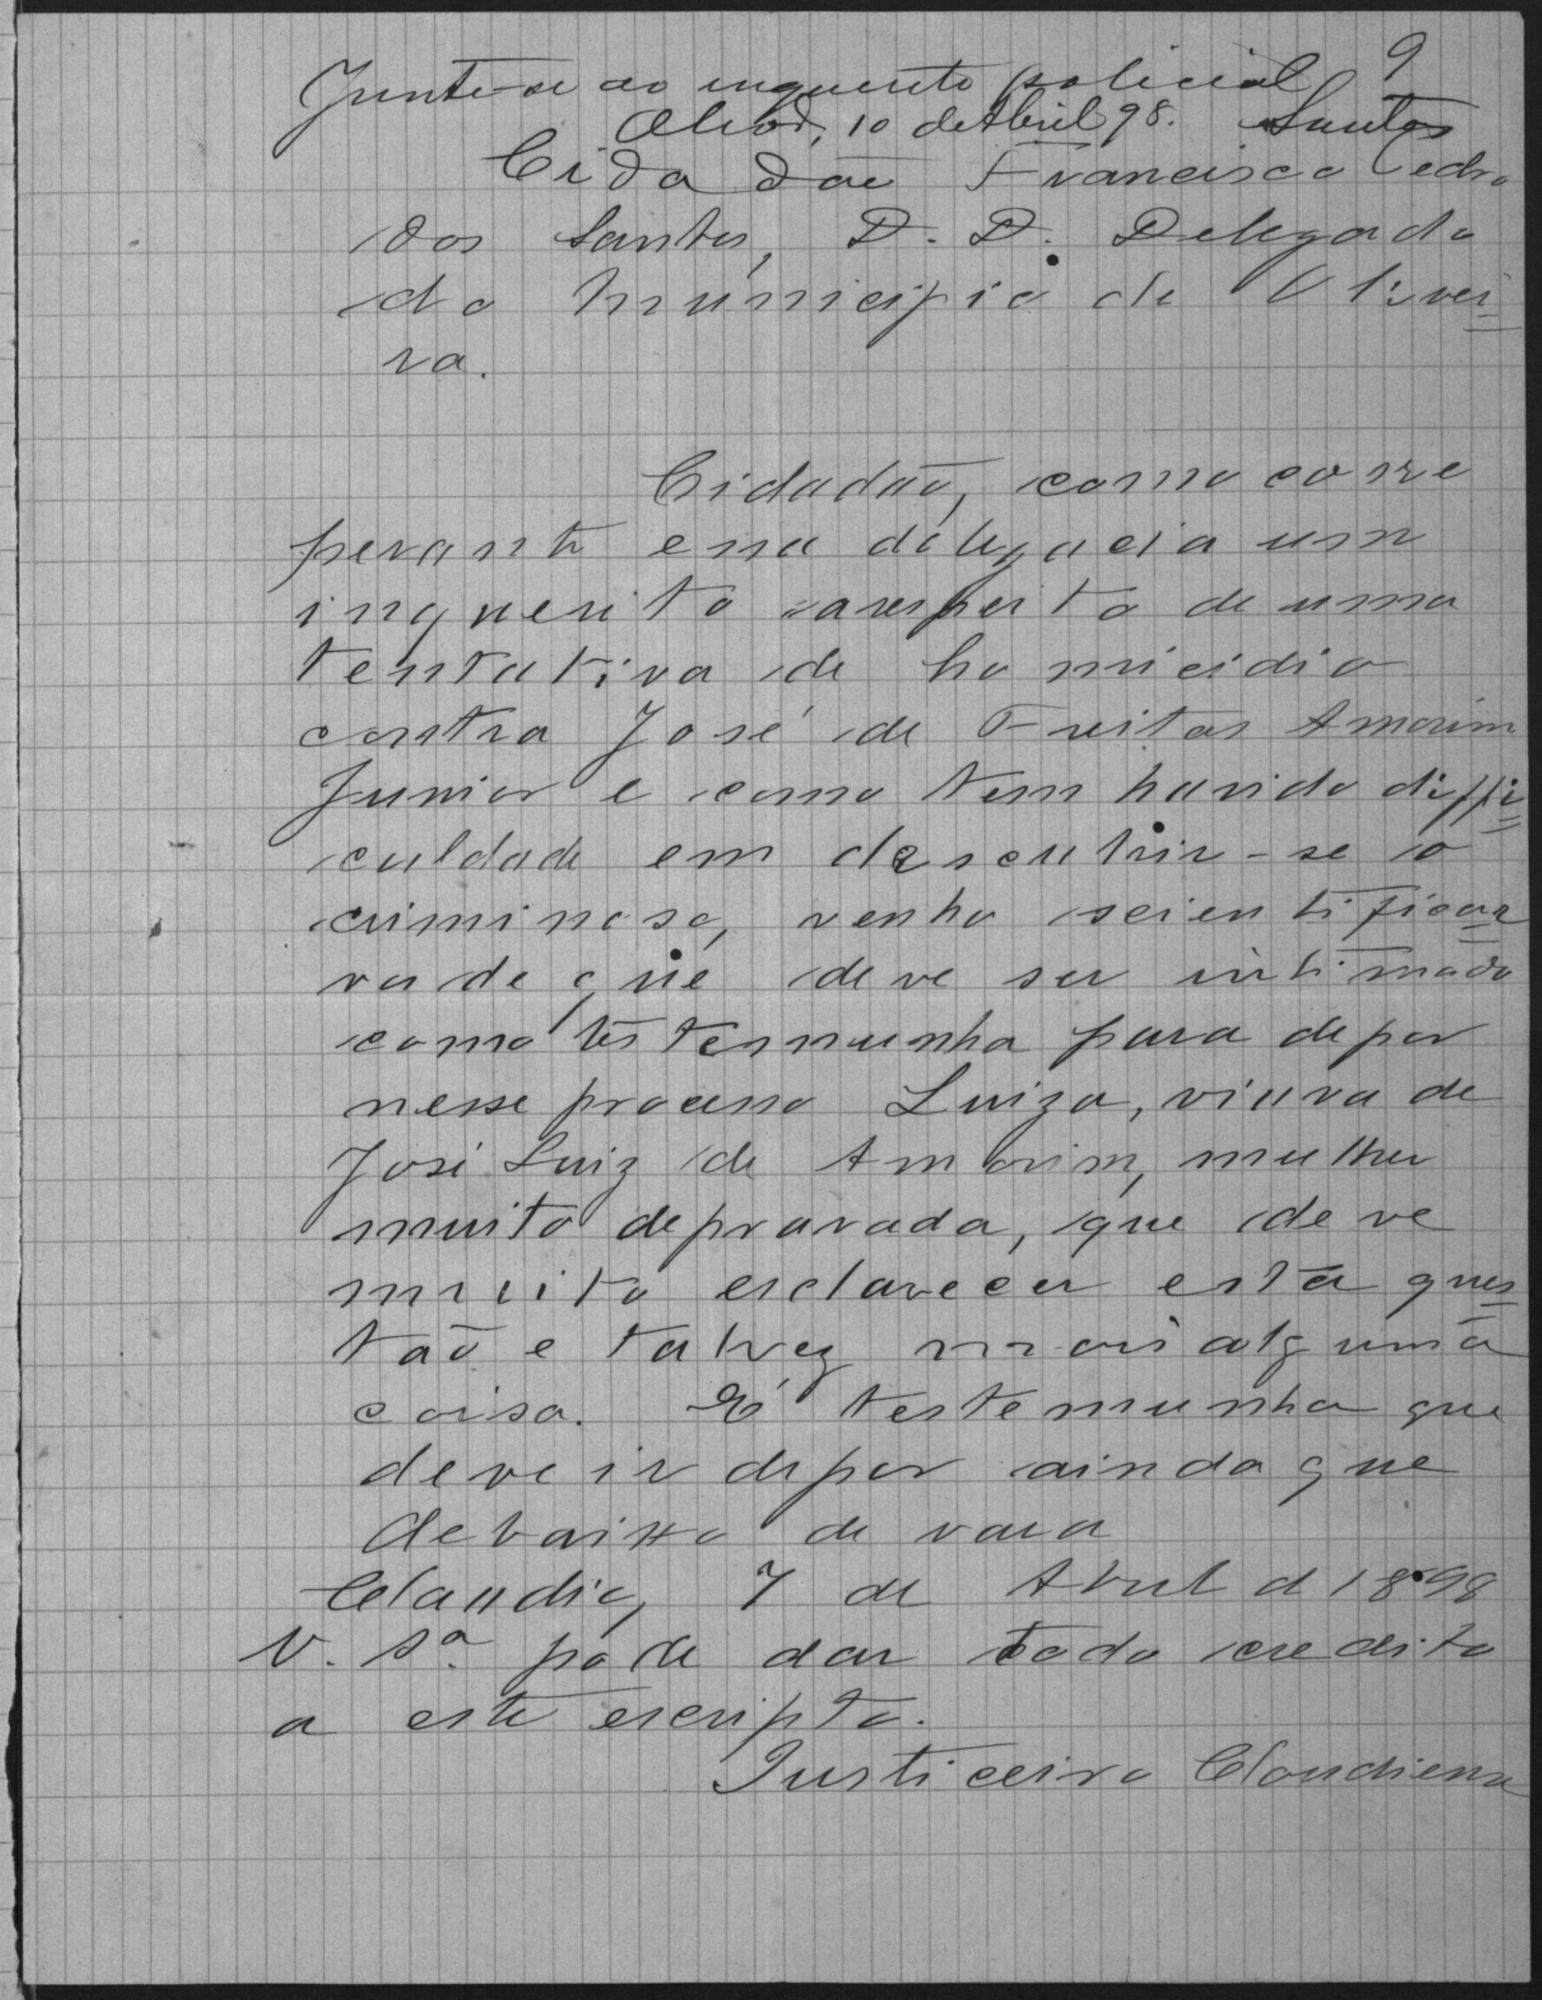 9
Junte-se ao inquerito policial
Olivrª, 10 de Abril 98. Santos
Cidadão Francisco Pedro
dos Santos, D. D. Delegado
do Municipio de Olivei
ra.
Cidadão, como corre
perante essa delegacia um
inquerito a respeito de uma
tentativa de homicidio
contra José de Freitas Amorim
Junior e como tem havido diffi
culdade em descubrir-se o
criminoso, venho scientificar
vos de que deve ser intimada
como testemunha para depor
nesse processo Luiza, viuva de
José Luiz de Amorim, mulher
muito depravada, que deve
muito esclarecer esta ques
tão e talvez mais alguma
coisa. É testemunha que
deve ir depor ainda que
debaixo de vara
Claudio, 7 de Abril d 1898
V. Sª. póde dar todo credito
a este escripto.
Justiceiro Claudiense